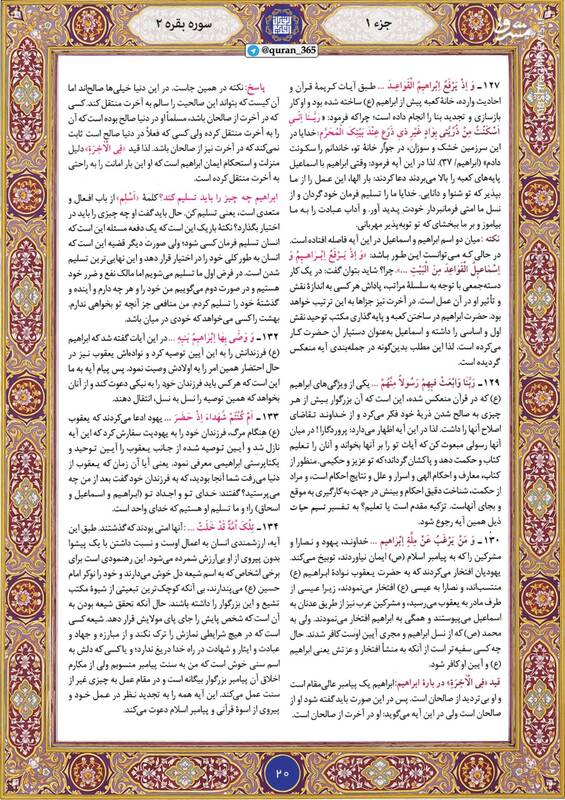 جزء ۱
سوره بقره ۲
@quran_365
مشرق
۱۲۷ ـ وَ إِذْ یَرْفَعُ إِبْراهِیمُ الْقَواعِدَ ... طبق آیات کریمهٔ قرآن و
احادیث وارده، خانهٔ کعبه پیش از ابراهیم (ع) ساخته شده بود و او کار
بازسازی و تجدید بنا را انجام داده است؛ چراکه فرمود: «رَبَّنا إِنِّی
أَسْکَنْتُ مِنْ ذُرِّیَّتِی بِوادٍ غَیْرِ ذِی زَرْعٍ عِنْدَ بَیْتِکَ الْمُحَرَّمِ؛ خدایا در
این سرزمین خشک و سوزان، در جوار خانهٔ تو، خاندانم را سکونت
دادم» (ابراهیم/ ۳۷). لذا در این آیه فرمود: وقتی ابراهیم با اسماعیل
پایه‌های کعبه را بالا می‌بردند دعا کردند: بار الها، این عمل را از ما
بپذیر که تو شنوا و دانایی. خدایا ما را تسلیم فرمان خود گردان و از
نسل ما امتی فرمانبردار خودت پدید آور. و آداب عبادت را به ما
بیاموز و بر ما ببخشای که تو توبه‌پذیر مهربانی.
نکته : میان دو اسم ابراهیم و اسماعیل در این آیه فاصله افتاده است.
در حالی که می‌توانست این طور باشد: «وَ إِذْ یَرْفَعُ إِبْراهِیمُ وَ
إِسْماعِیلُ الْقَواعِدَ مِنَ الْبَیْتِ ...». چرا؟ شاید بتوان گفت: در یک کار
دسته‌جمعی با توجه به سلسلهٔ مراتب، پاداش هر کسی به اندازهٔ نقش
و تأثیر او در آن عمل است. در آخرت نیز جزاها به این ترتیب خواهد
بود. حضرت ابراهیم در ساختن کعبه و پایه‌گذاری مکتب توحید نقش
اول و اساسی را داشته و اسماعیل به‌عنوان دستیار آن حضرت کار
می‌کرده است. لذا این مطلب بدین‌گونه در جمله‌بندی آیه منعکس
گردیده است.
۱۲۹ ـ رَبَّنا وَابْعَثْ فِیهِمْ رَسُولاً مِنْهُمْ ... یکی از ویژگی‌های ابراهیم
(ع) که در قرآن منعکس شده، این است که آن بزرگوار بیش از هر
چیزی به صالح شدن ذریهٔ خود فکر می‌کرد و از خداوند تقاضای
اصلاح آنها را داشت. لذا در این آیه اظهار می‌دارد: پروردگارا! در میان
آنها رسولی مبعوث کن که آیات تو را بر آنها بخواند و آنان را تعلیم
کتاب و حکمت دهد و پاکشان گرداند؛ که تو عزیز و حکیمی. منظور از
کتاب، معارف و احکام الهی و اسرار و علل و نتایج احکام است، و مراد
از حکمت، شناخت دقیق احکام و بینش در جهت به‌کارگیری به موقع
و بجای آنهاست. تزکیه مقدم است یا تعلیم؟ به تفسیر نسیم حیات
ذیل همین آیه رجوع شود.
۱۳۰ ـ وَ مَنْ یَرْغَبُ عَنْ مِلَّةِ إِبْراهِیمَ ... خداوند، یهود و نصارا و
مشرکین را که به پیامبر اسلام (ص) ایمان نیاوردند، توبیخ می‌کند.
یهودیان افتخار می‌کردند که به حضرت یعقوب نوادهٔ ابراهیم (ع)
منتسب‌اند، و نصارا به عیسی (ع) افتخار می‌نمودند، زیرا عیسی از
طرف مادر به یعقوب می‌رسید، و مشرکین عرب نیز از طریق عدنان به
اسماعیل می‌پیوستند و همگی به ابراهیم افتخار می‌نمودند. ولی به
محمد (ص) که از نسل ابراهیم و مجری آیین اوست کافر شدند. حال
چه کسی سفیه‌تر است از آنکه به منشأ افتخار و عزتش یعنی ابراهیم
(ع) و آیین او کافر شود.
قید «فِی الْآخِرَةِ» دربارهٔ ابراهیم: ابراهیم یک پیامبر عالی‌مقام است
و او بی‌تردید از صالحان است. پس در این صورت باید گفته شود او از
صالحان است ولی در این آیه می‌گوید: او در آخرت از صالحان است.
پاسخ: نکته در همین جاست. در این دنیا خیلی‌ها صالح‌اند اما
آن کیست که بتواند این صالحیت را سالم به آخرت منتقل کند. کسی
که در آخرت از صالحان باشد، مسلماً او در دنیا صالح بوده است که آن
را به آخرت منتقل کرده ولی کسی که فعلاً در دنیا صالح است ثابت
نمی‌کند که در آخرت نیز از صالحان باشد. لذا قید «فِی الْآخِرَةِ» دلیل
منزلت و استحکام ایمان ابراهیم است که او این بار امانت را به راحتی
به آخرت منتقل کرده است.
ابراهیم چه چیز را باید تسلیم کند؟ کلمهٔ «أَسْلِم» از باب افعال و
متعدی است، یعنی تسلیم کن. حال باید گفت او چه چیزی را باید در
اختیار بگذارد؟ نکتهٔ باریک این است که یک دفعه مسئله این است که
انسان تسلیم فرمان کسی شود؛ ولی صورت دیگر قضیه این است که
انسان به طور کلی خود را در اختیار قرار دهد و این نهایی‌ترین تسلیم
شدن است. در فرض اول ما تسلیم می‌شویم اما مالک نفع و ضرر خود
هستیم و در صورت دوم می‌گوییم من خود را و هر چه دارم و آینده و
گذشتهٔ خود را تسلیم کردم. من منافعی جز آنچه تو بخواهی ندارم.
بهشت را کسی می‌خواهد که خودی در میان باشد.
۱۳۲ ـ وَ وَصَّى بِها إِبْراهِیمُ بَنِیهِ ... در این آیات گفته شد که ابراهیم
(ع) فرزندانش را به این آیین توصیه کرد و نواده‌اش یعقوب نیز در
حال احتضار همین امر را به اولادش وصیت نمود. پس پیام آیه به ما
این است که هر کس باید فرزندان خود را به نیکی دعوت کند و از آنان
بخواهد که همین توصیه را نسل به نسل، انتقال دهند.
۱۳۳ ـ أَمْ کُنْتُمْ شُهَداءَ إِذْ حَضَرَ ... یهود ادعا می‌کردند که یعقوب
(ع) هنگام مرگ، فرزندان خود را به یهودیت سفارش کرد که این آیه
نازل شد و آیین توصیه شده از جانب یعقوب را آیین توحید و
یکتاپرستی ابراهیمی معرفی نمود. یعنی آیا آن زمان که یعقوب از
دنیا می‌رفت شما آنجا بودید، که به فرزندان خود گفت بعد از من چه
می‌پرستید؟ گفتند: خدای تو و اجداد تو (ابراهیم و اسماعیل و
اسحاق) را، و ما تسلیم او هستیم که خدای واحد است.
۱۳۴ ـ تِلْکَ أُمَّةٌ قَدْ خَلَتْ ... : آنها امتی بودند که گذشتند. طبق این
آیه، ارزشمندی انسان به اعمال اوست و نسبت داشتن با یک پیشوا
بدون پیروی از او بی‌ارزش شمرده می‌شود. این رهنمودی است برای
برخی اشخاص که به اسم شیعه دل خوش می‌دارند و خود را نوکر امام
حسین (ع) می‌پندارند، بی آنکه کوچک‌ترین تبعیتی از شیوهٔ مکتب
تشیع و این بزرگوار را داشته باشند. حال آنکه تحقق شیعه بودن به
آن است که شخص پایش را جای پای مولایش قرار دهد. شیعه کسی
است که در هیچ شرایطی نمازش را ترک نکند و از مبارزه و جهاد و
عبادت و ایثار و شهادت در راه خدا دریغ ندارد؛ و یا کسی که دلش به
اسم سنی خوش است که من به سنت پیامبر منسوبم ولی از مکارم
اخلاق آن پیامبر بزرگوار بیگانه است و در مقام عمل به چیزی غیر از
سنت عمل می‌کند. این آیه همه را به تجدید نظر در عمل خود و
پیروی از اسوهٔ قرآنی و پیامبر اسلام دعوت می‌کند.
۲۰